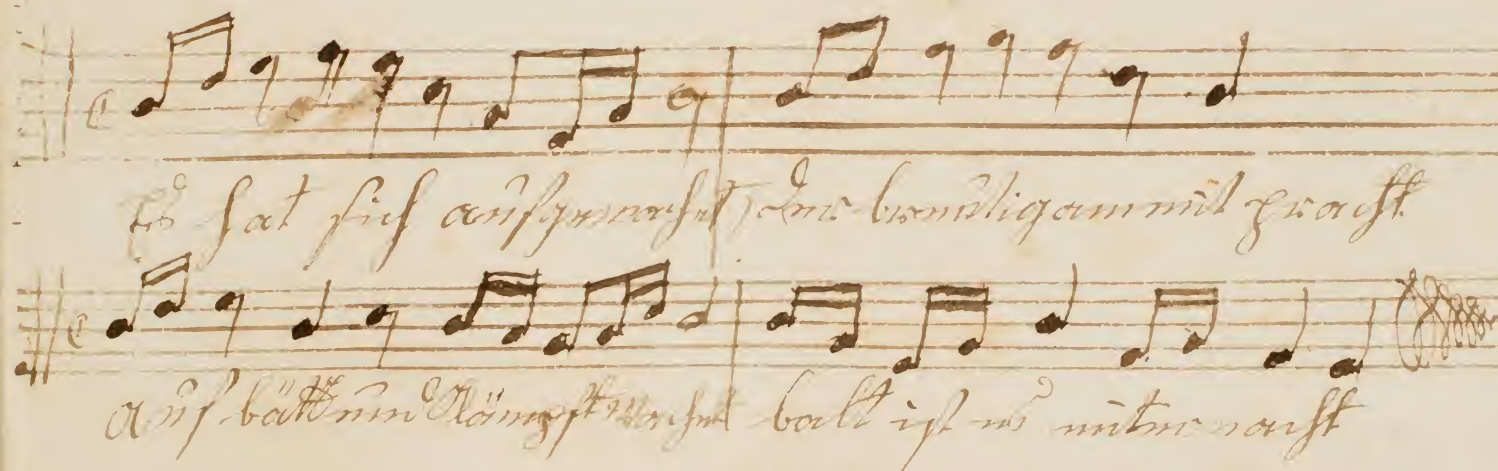 Es hat sich aufgemachet der breutigam mit pracht
auf bätt und Kämpft wachet balt ist es miternacht